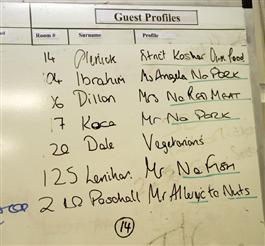 Guest Profiles
Room # Surname Profile
14 Strict Kosher Own food
104 Ibrahim Ms Angela No PORK
16 Dillon Mrs No RED MEAT
17 Koca Mr No PORK
20 Dale Vegetarians
125 Lenihan Mr No FISH
2 Paschall Mr Allergic to Nuts
14